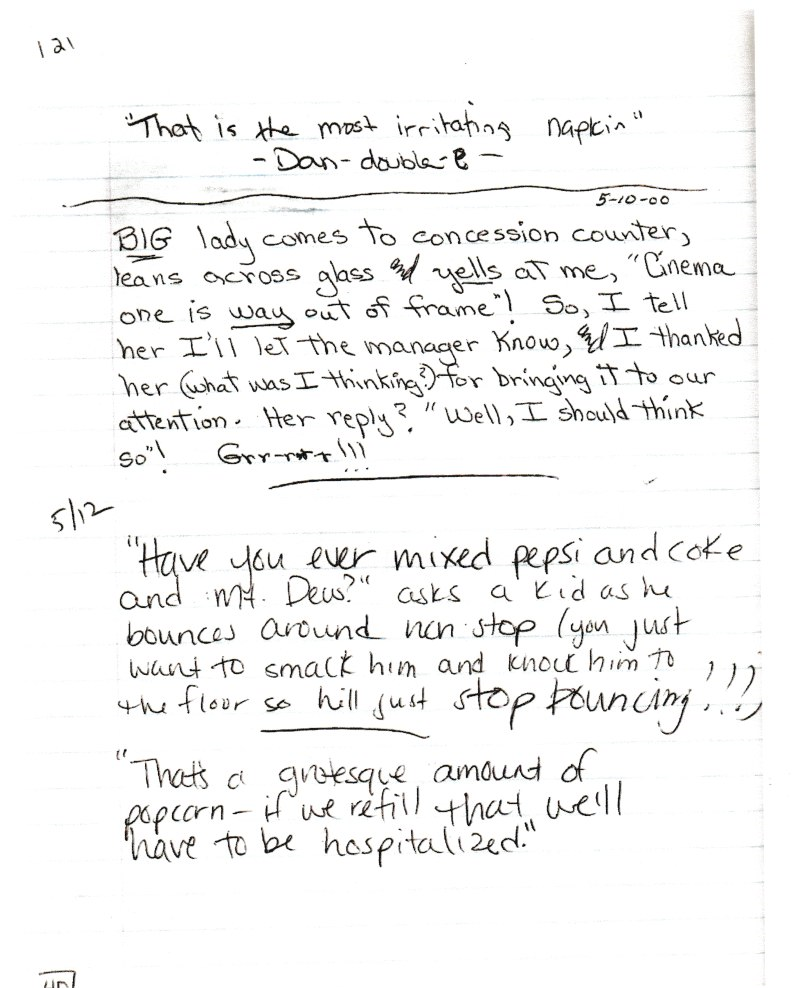 121
"That is the most irritating napkin"
- Dan - double-e -
5-10-00
BIG lady comes to concession counter,
leans across glass and yells at me, "Cinema
one is way out of frame"! So, I tell
her I'll let the manager know, and I thanked
her (what was I thinking?) for bringing it to our
attention. Her reply? "Well, I should think
so"! Grr-rrr!!!
5/12
"Have you ever mixed pepsi and coke
and Mt. Dew?" asks a kid as he
bounces around non stop (you just
want to smack him and knock him to
the floor so hill just stop bouncing!!!)
"That's a grotesque amount of
popcorn - if we refill that we'll
have to be hospitalized."